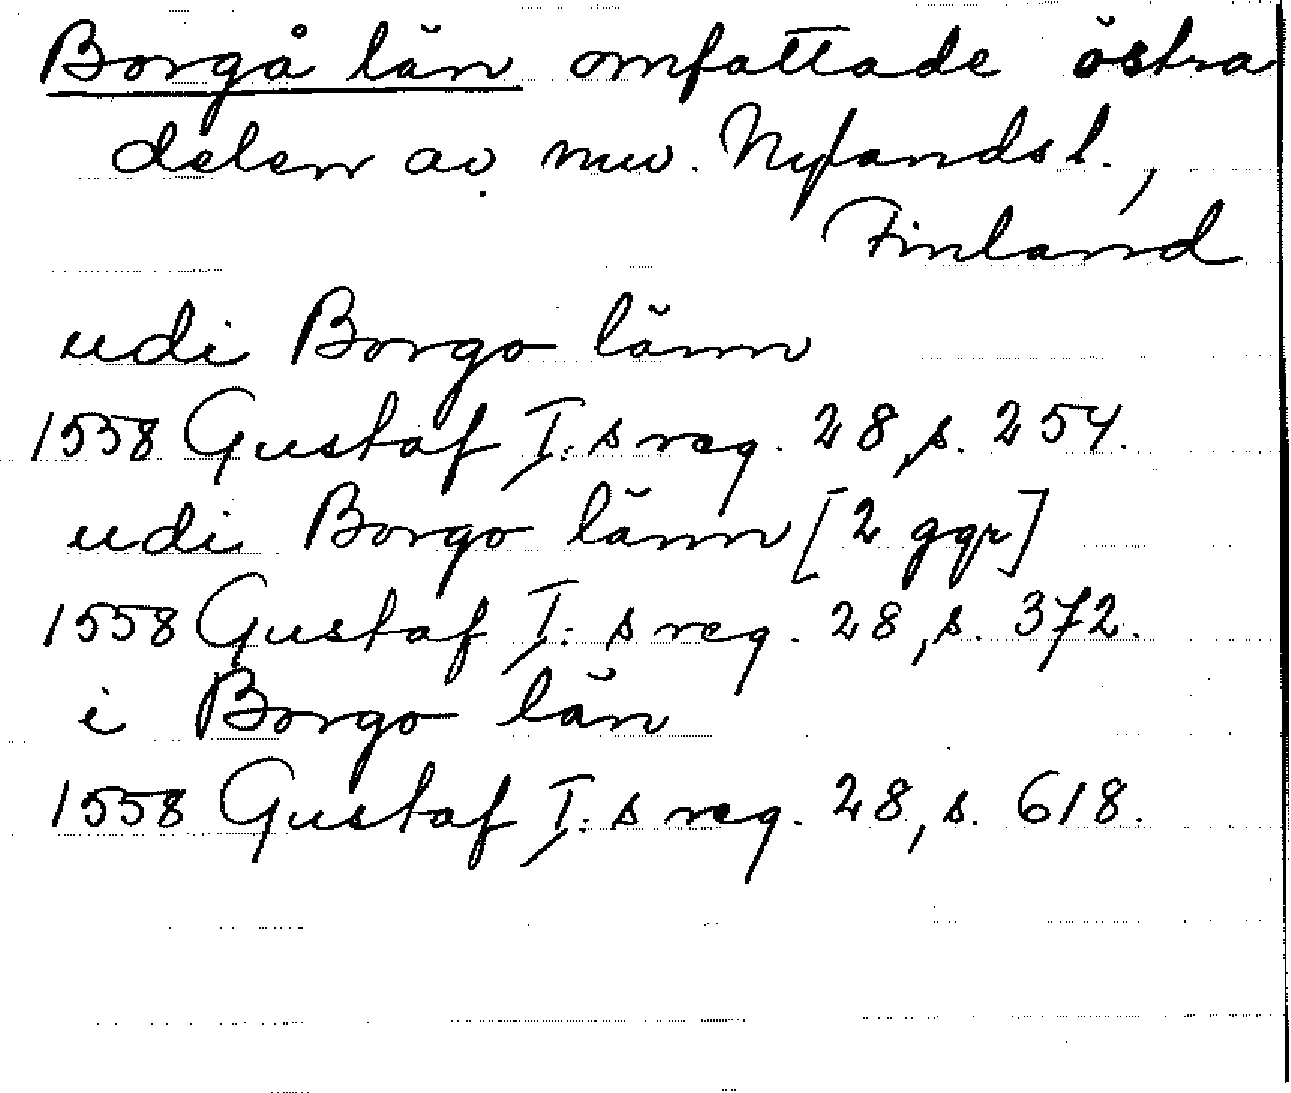 Borgå län omfattade östra
delen av nuv. Nylands l.,
Finland
udi Borgo länn
1558 Gustaf I:s reg. 28, s. 254.
udi Borgo länn [2 ggr]
1558 Gustaf I:s reg. 28, s. 372.
i Borgo län
1558 Gustaf I:s reg. 28, s. 618.